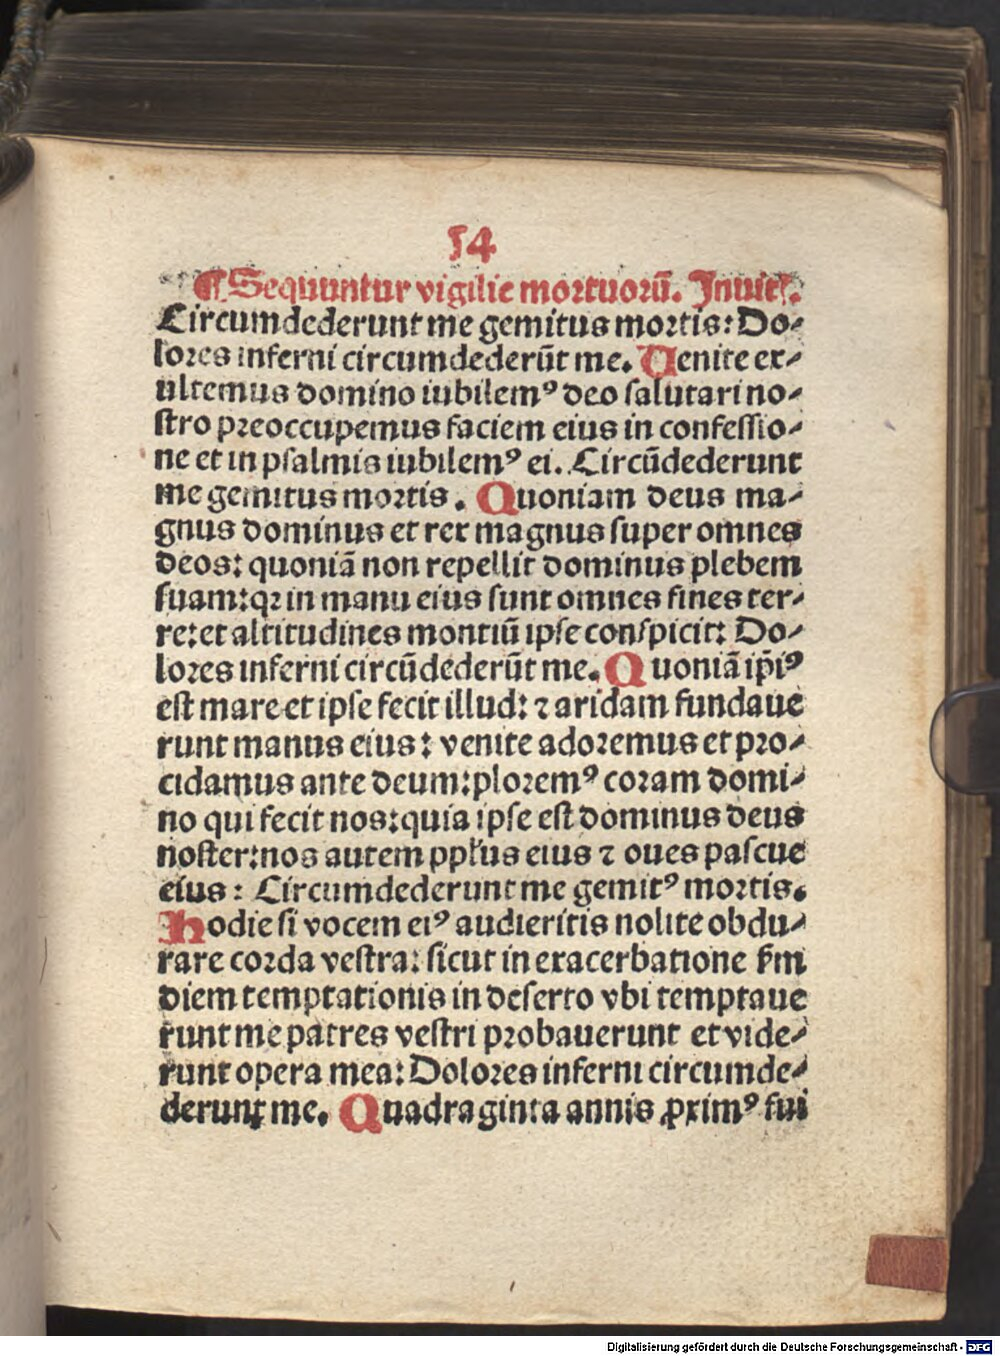 54
¶ Sequuntur vigilie mortuorū. Inuit⁊.
Circumdederunt me gemitus mortis: Do⸗
lores inferni circumdederūt me. Venite ex⸗
ultemus domino iubilemꝰ deo salutari no⸗
stro preoccupemus faciem eius in confessio⸗
ne et in psalmis iubilemꝰ ei. Circūdederunt
me gemitus mortis. Quoniam deus ma⸗
gnus dominus et rex magnus super omnes
deos: quoniā non repellit dominus plebem
suam: qꝛ in manu eius sunt omnes fines ter⸗
re: et altitudines montiū ipse conspicit: Do⸗
lores inferni circūdederūt me. Quoniā ip̄iꝰ
est mare et ipse fecit illud: ⁊ aridam fundaue
runt manus eius: venite adoremus et pro⸗
cidamus ante deum: ploremꝰ coram domi⸗
no qui fecit nos: quia ipse est dominus deus
noster: nos autem ppl̓us eius ⁊ oues pascue
eius: Circumdederunt me gemitꝰ mortis.
Hodie si vocem eiꝰ audieritis nolite obdu⸗
rare corda vestra: sicut in exacerbatione ẜm
diem temptationis in deserto vbi temptaue
runt me patres vestri probauerunt et vide⸗
runt opera mea: Dolores inferni circumde⸗
derunt me. Quadraginta annis ꝓximꝰ fui
Digitalisierung gefördert durch die Deutsche Forschungsgemeinschaft - DFG